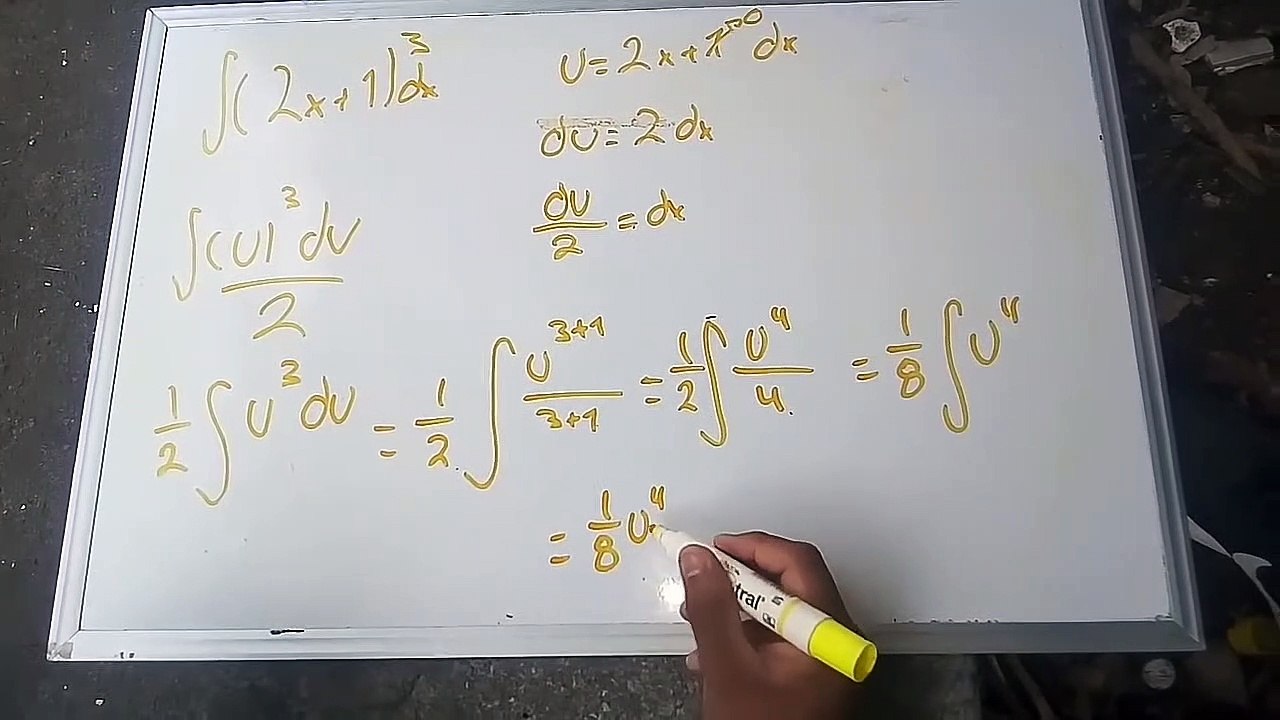 ∫(2x+1)³dx
U=2x+1⁼⁰dx
dU=2dx
dU/2=dx
∫(U)³dU/2
1/2∫U³dU = 1/2∫U³⁺¹/3+1 = 1/2∫U⁴/4. = 1/8∫U⁴
= 1/8U⁴
tral